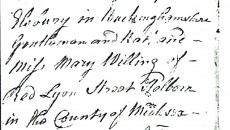 in Buckinghamshire
Gentleman and Bat. and
Miss Mary Willing of
Red Lyon Street Holborn
in the County of Middsex